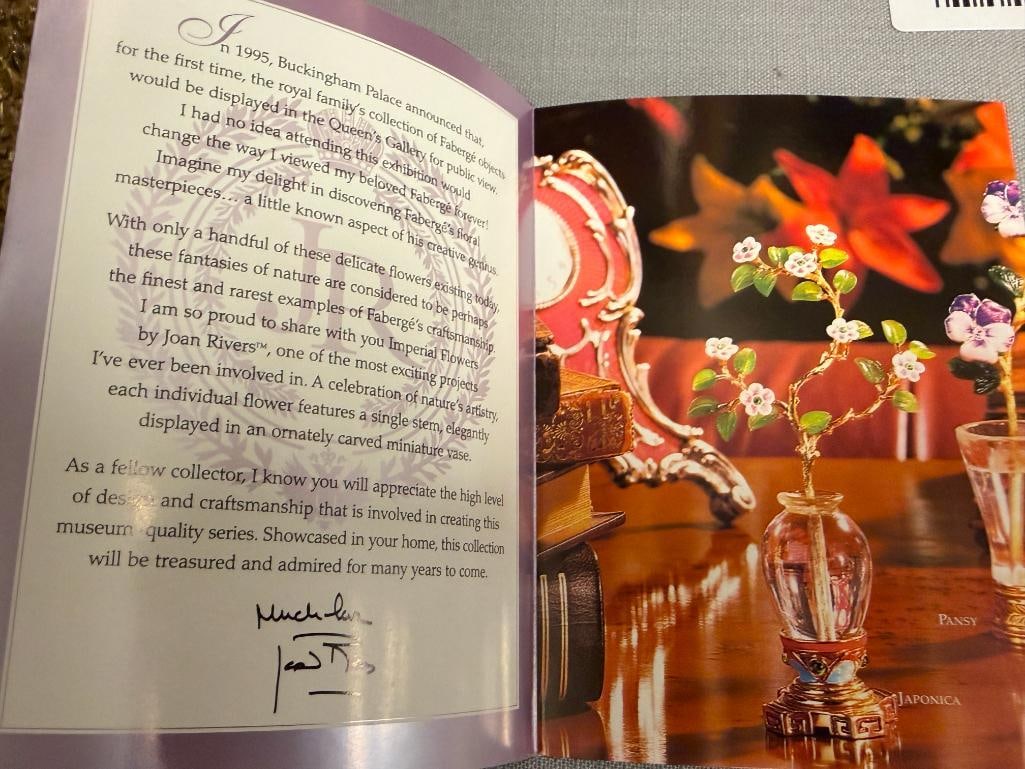 In 1995, Buckingham Palace announced that,
for the first time, the royal family's collection of Fabergé objects
would be displayed in the Queen's Gallery for public view.
I had no idea attending this exhibition would
change the way I viewed my beloved Fabergé forever!
Imagine my delight in discovering Fabergé's floral
masterpieces.... a little known aspect of his creative genius.
With only a handful of these delicate flowers existing today,
these fantasies of nature are considered to be perhaps
the finest and rarest examples of Fabergé's craftsmanship.
I am so proud to share with you Imperial Flowers
by Joan Rivers™, one of the most exciting projects
I've ever been involved in. A celebration of nature's artistry,
each individual flower features a single stem, elegantly
displayed in an ornately carved miniature vase.
As a fellow collector, I know you will appreciate the high level
of design and craftsmanship that is involved in creating this
museum quality series. Showcased in your home, this collection
will be treasured and admired for many years to come.
Much love
Joan Rivers
JR
PANSY
JAPONICA